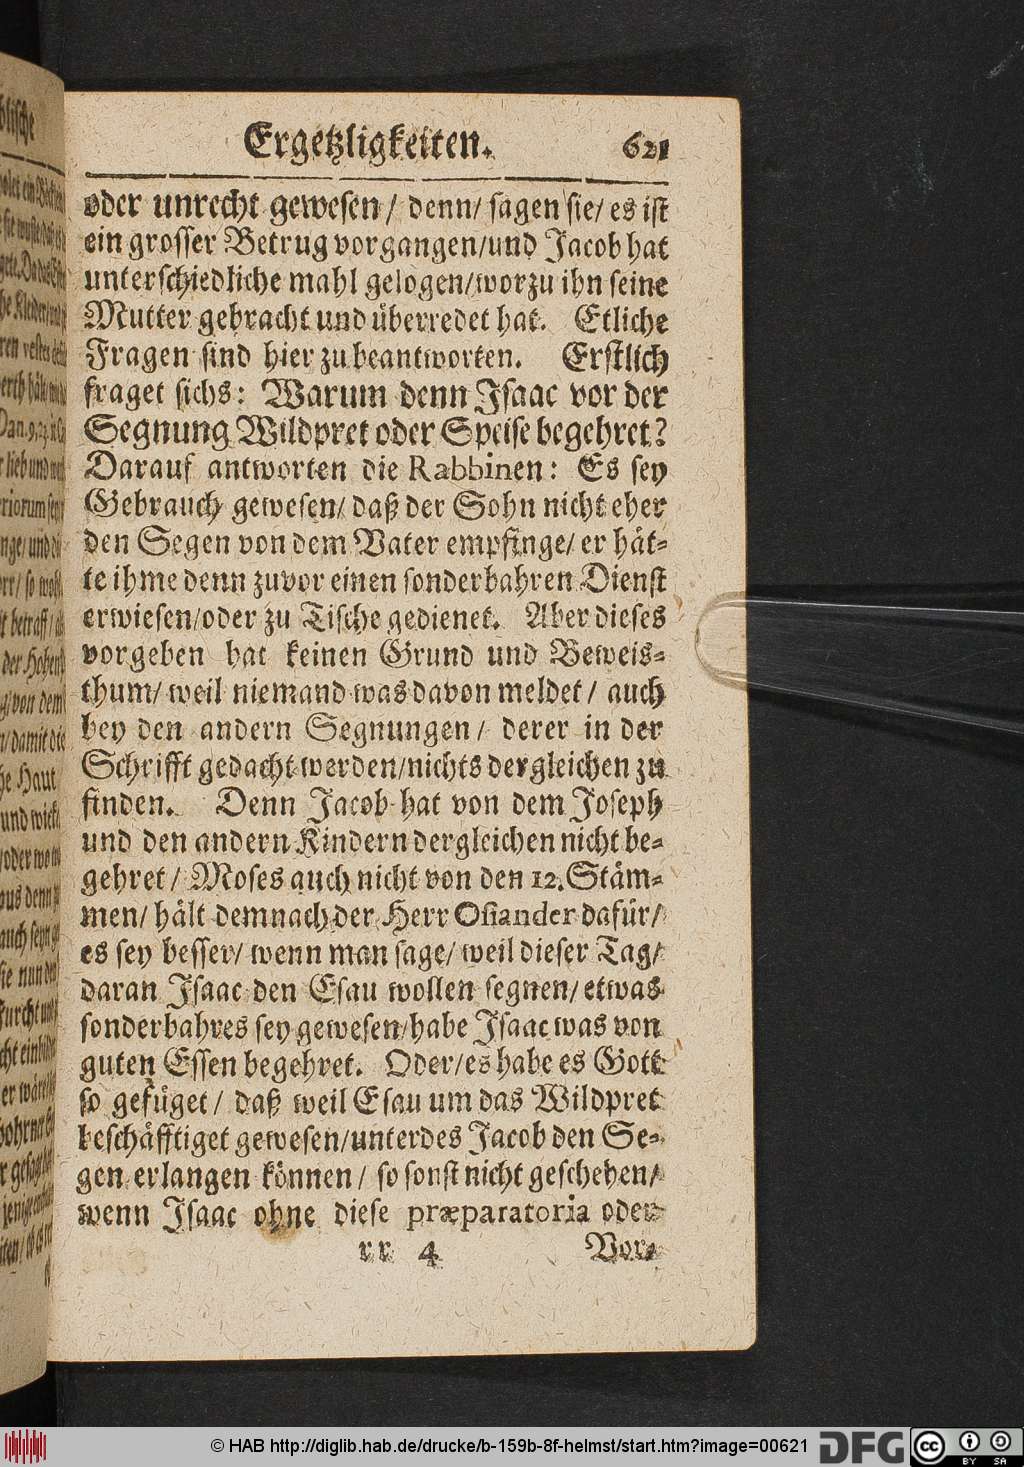 Ergetzligkeiten. 621
oder unrecht gewesen/ denn/ sagen sie/ es ist
ein grosser Betrug vorgangen/und Jacob hat
unterschiedliche mahl gelogen/worzu ihn seine
Mutter gebracht und überredet hat. Etliche
Fragen sind hier zu beantworten. Erstlich
fraget sichs: Warum denn Isaac vor der
Segnung Wildpret oder Speise begehret?
Darauf antworten die Rabbinen: Es sey
Gebrauch gewesen/ daß der Sohn nicht eher
den Segen von dem Vater empfinge/ er hät-
te ihme denn zuvor einen sonderbahren Dienst
erwiesen/oder zu Tische gedienet. Aber dieses
vorgeben hat keinen Grund und Beweis-
thum/ weil niemand was davon meldet/ auch
bey den andern Segnungen/ derer in der
Schrifft gedacht werden/nichts dergleichen zu
finden. Denn Jacob hat von dem Joseph
und den andern Kindern dergleichen nicht be-
gehret/ Moses auch nicht von den 12. Stäm-
men/ hält demnach der Herr Osiander dafür/
es sey besser/ wenn man sage/ weil dieser Tag/
daran Isaac den Esau wollen segnen/ etwas
sonderbahres sey gewesen/habe Isaac was von
guten Essen begehret. Oder/es habe es Gott
so gefüget/ daß weil Esau um das Wildpret
beschäfftiget gewesen/unterdes Jacob den Se-
gen erlangen können/ so sonst nicht geschehen/
wenn Isaac ohne diese præparatoria oder
rr 4 Vor-
© HAB http://diglib.hab.de/drucke/b-159b-8f-helmst/start.htm?image=00621 DFG cc BY SA